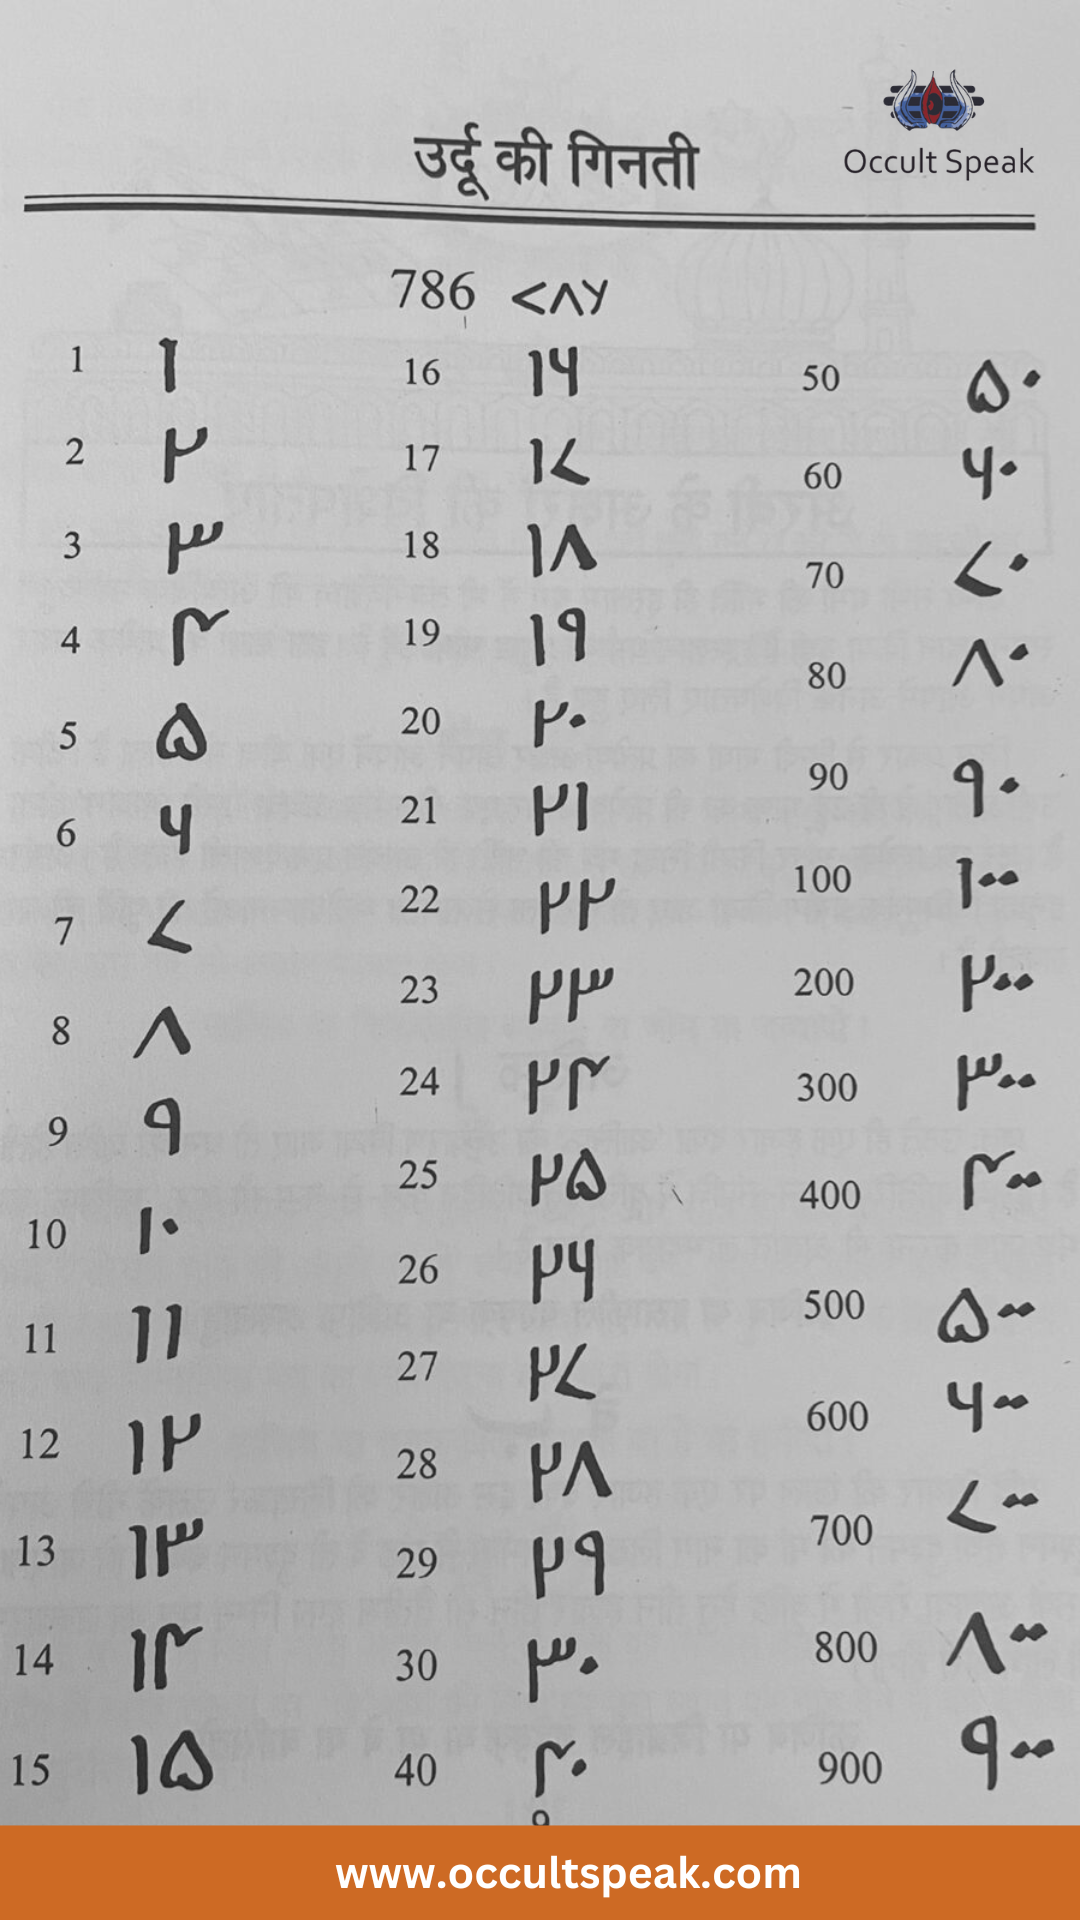 Occult Speak
उर्दू की गिनती
786 ۷۸۶
1 ۱ 16 ۱۶ 50 ۵۰
2 ۲ 17 ۱۷ 60 ۶۰
3 ۳ 18 ۱۸ 70 ۷۰
4 ۴ 19 ۱۹ 80 ۸۰
5 ۵ 20 ۲۰ 90 ۹۰
6 ۶ 21 ۲۱ 100 ۱۰۰
7 ۷ 22 ۲۲ 200 ۲۰۰
8 ۸ 23 ۲۳ 300 ۳۰۰
9 ۹ 24 ۲۴ 400 ۴۰۰
10 ۱۰ 25 ۲۵ 500 ۵۰۰
11 ۱۱ 26 ۲۶ 600 ۶۰۰
12 ۱۲ 27 ۲۷ 700 ۷۰۰
13 ۱۳ 28 ۲۸ 800 ۸۰۰
14 ۱۴ 29 ۲۹ 900 ۹۰۰
15 ۱۵ 30 ۳۰
40 ۴۰
9
www.occultspeak.com